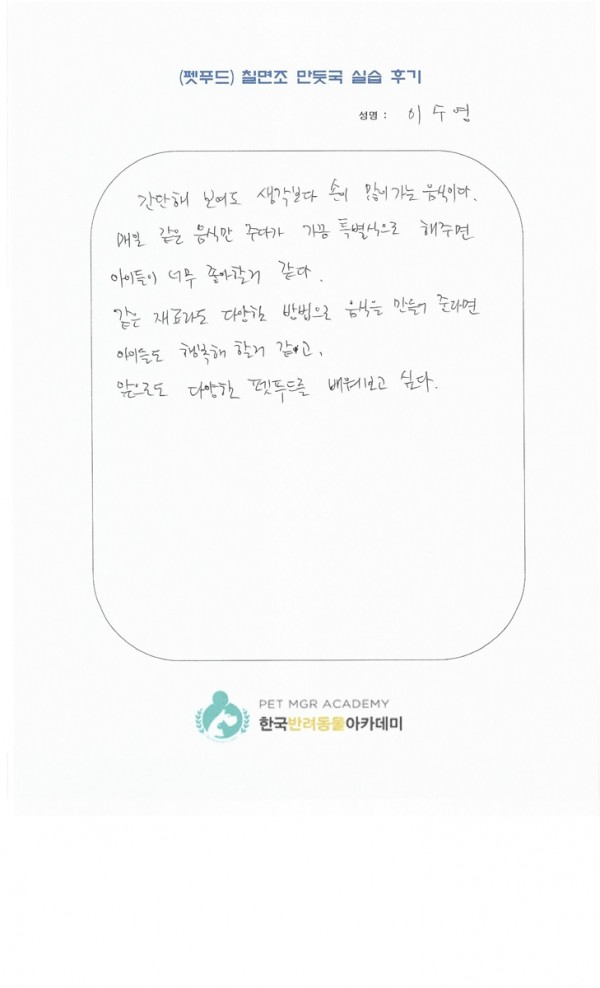 (펫푸드) 칠면조 만둣국 실습 후기
성명 : 이수연
간단해 보여도 생각보다 손이 많이가는 음식이다.
매일 같은 음식만 주다가 가끔 특별식으로 해주면
아이들이 너무 좋아할거 같다.
같은 재료라도 다양한 방법으로 음식을 만들어 준다면
아이들도 행복해 할거 같고,
앞으로도 다양한 펫푸드를 배워보고 싶다.
PET MGR ACADEMY
한국반려동물아카데미